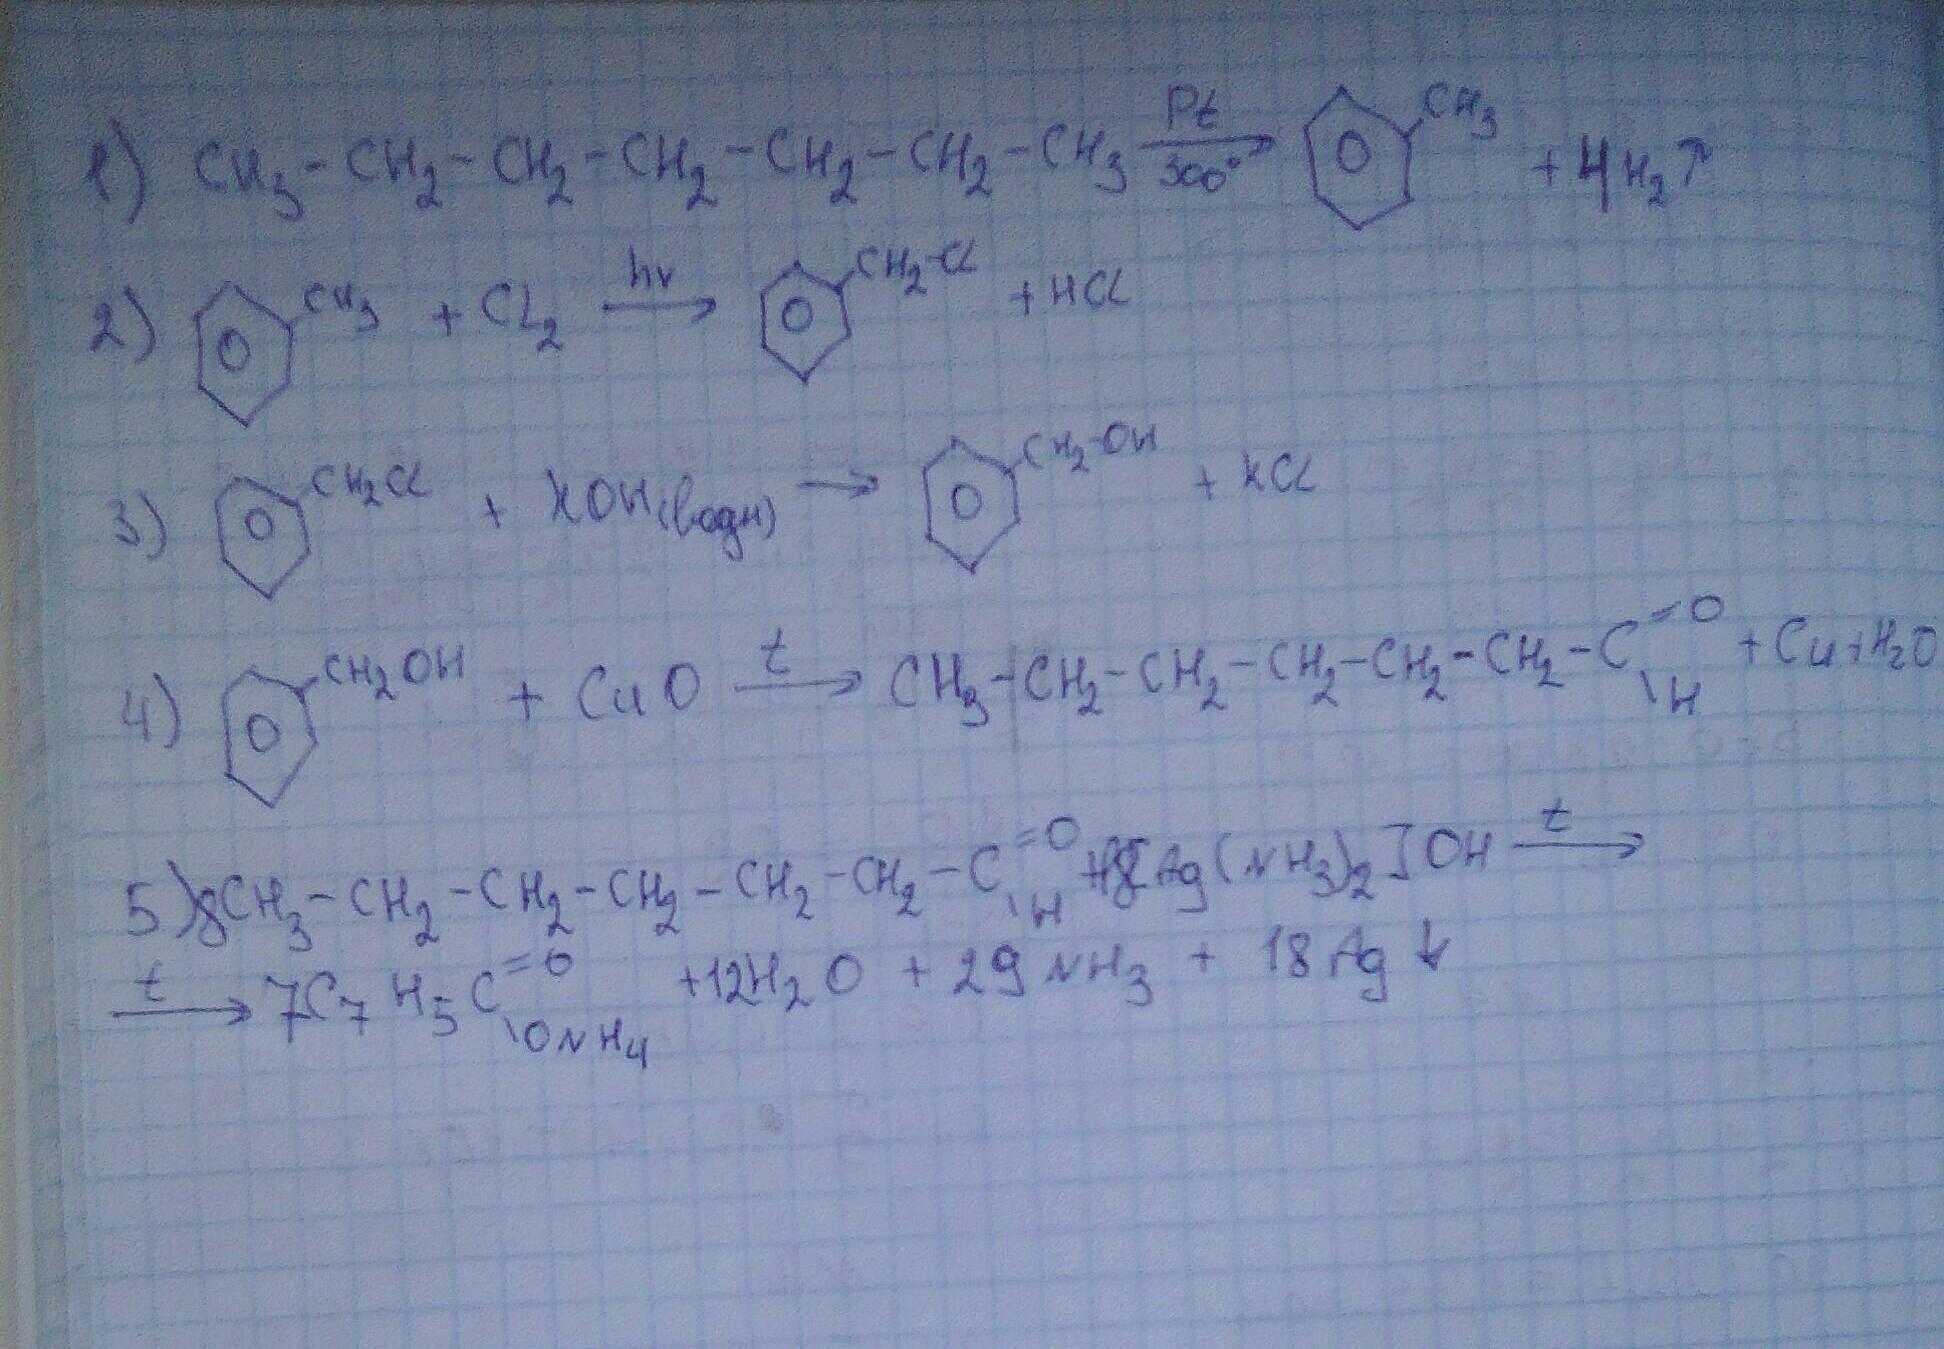 1) CH₃-CH₂-CH₂-CH₂-CH₂-CH₂-CH₃ Pt 300° → CH₃ + 4H₂↑
2) CH₃ + CL₂ hν → CH₂-Cl + HCl
3) CH₂Cl + KOH(водн) → CH₂-OH + KCl
4) CH₂OH + CuO t → CH₃-CH₂-CH₂-CH₂-CH₂-CH₂-C=O \H + Cu + H₂O
5) 8CH₃-CH₂-CH₂-CH₂-CH₂-CH₂-C=O \H + [Ag(NH₃)₂]OH t →
t → 7C₇H₅C=O \ONH₄ + 12H₂O + 29NH₃ + 18Ag↓